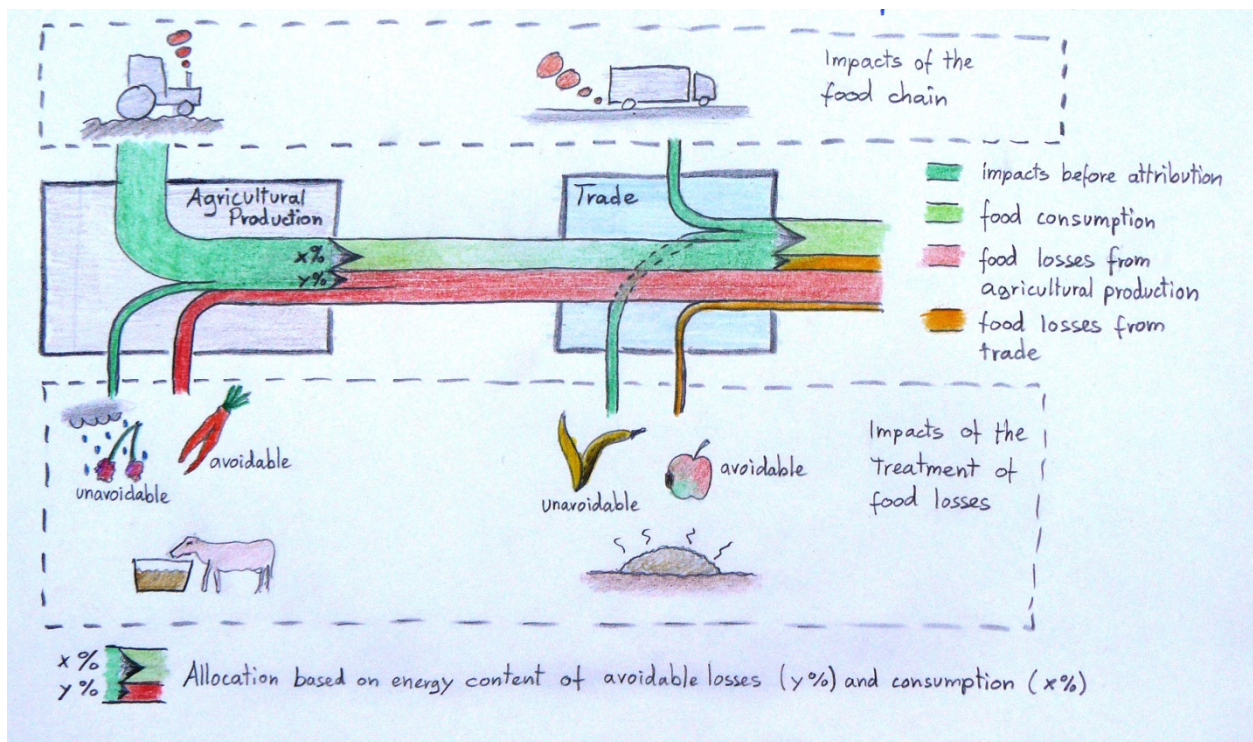 Impacts of the
food chain
Agricultural
Production
Trade
x%
y%
impacts before attribution
food consumption
food losses from
agricultural production
food losses from
trade
unavoidable
avoidable
unavoidable
avoidable
Impacts of the
treatment of
food losses
x%
y%
Allocation based on energy content of avoidable losses (y%) and consumption (x%)